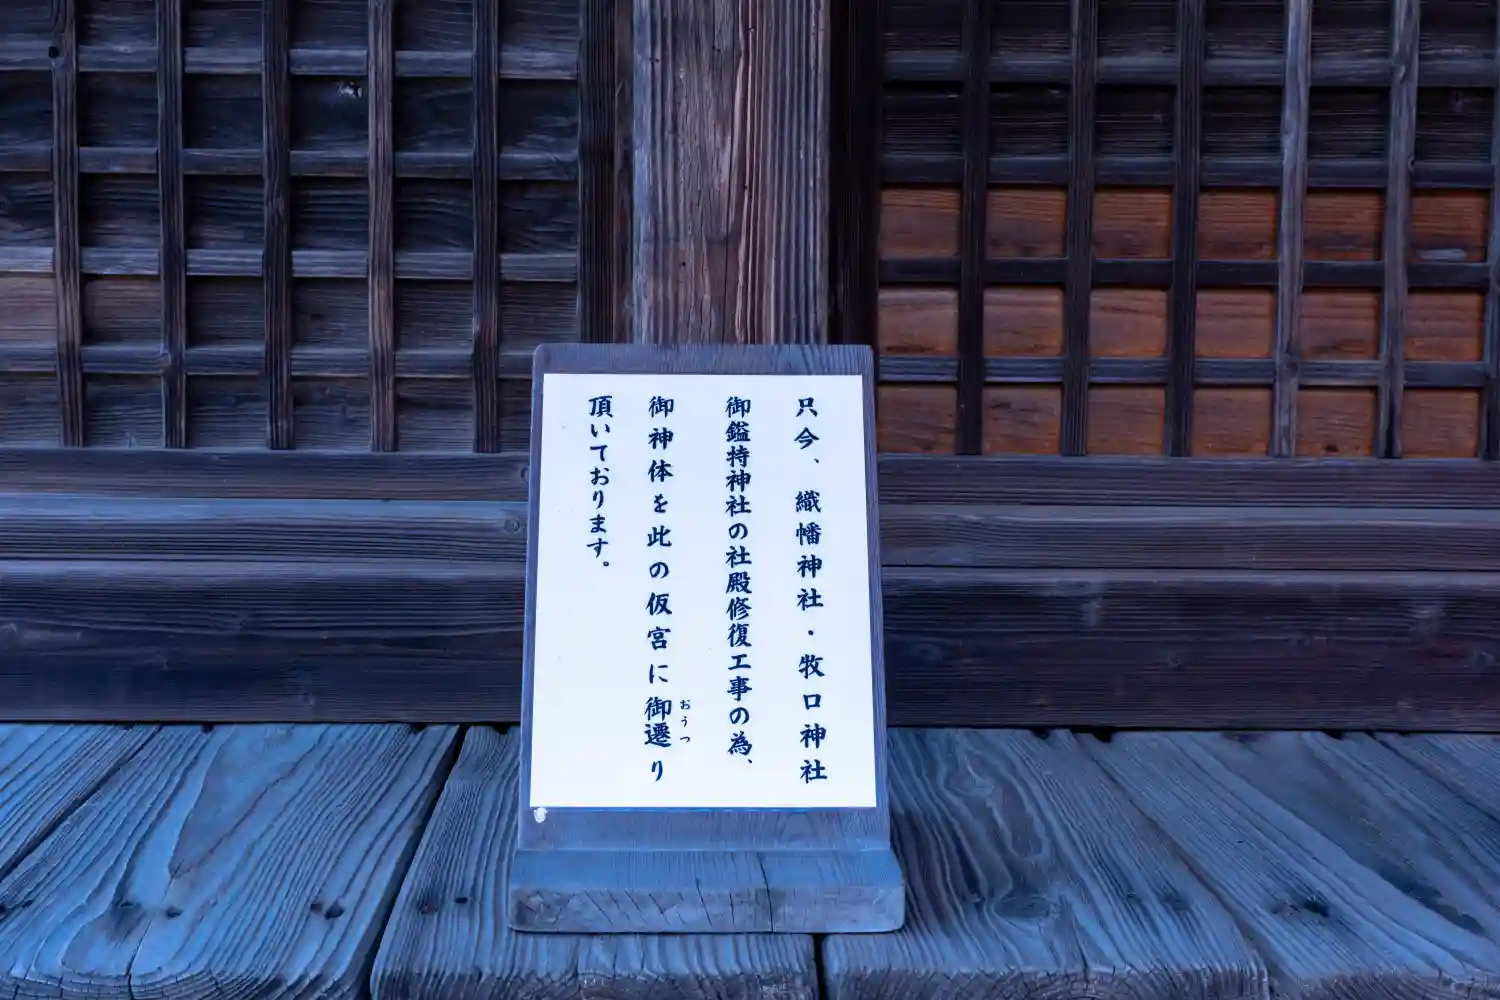 只今、織幡神社・牧口神社
御鎰持神社の社殿修復工事の為、
御神体を此の仮宮に御遷り
おうつ
頂いております。